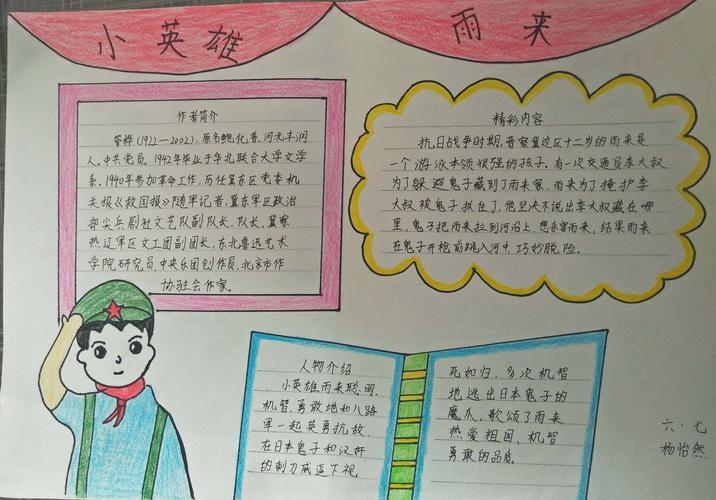 小英雄 雨来
作者简介
管桦(1922—2002),原名鲍化普,河北丰润
人。中共党员。1942年毕业于华北联合大学文学
系。1940年参加革命工作,历任冀东区党委机
关报《救国报》随军记者,冀东军区政治
部尖兵剧社文艺队副队长、队长,冀察
热辽军区文工团副团长,东北鲁迅艺术
学院研究员,中央乐团创作员,北京市作
协驻会作家。
精彩内容
抗日战争时期,晋察冀边区十二岁的雨来是
一个游泳本领很强的孩子。有一次交通员李大叔
为了躲避鬼子藏到了雨来家,雨来为了掩护李
大叔被鬼子抓住了,他坚决不说出李大叔藏在哪
里,鬼子把雨来拉到河沿上,想杀害雨来,结果雨来
在鬼子开枪前跳入河中,巧妙脱险。
人物介绍
小英雄雨来聪明、
机智、勇敢地和八路
军一起英勇抗敌,
在日本鬼子和汉奸
的刺刀威逼下视
死如归,多次机智
地逃出日本鬼子的
魔爪,歌颂了雨来
热爱祖国、机智
勇敢的品质。
六·七
杨怡然